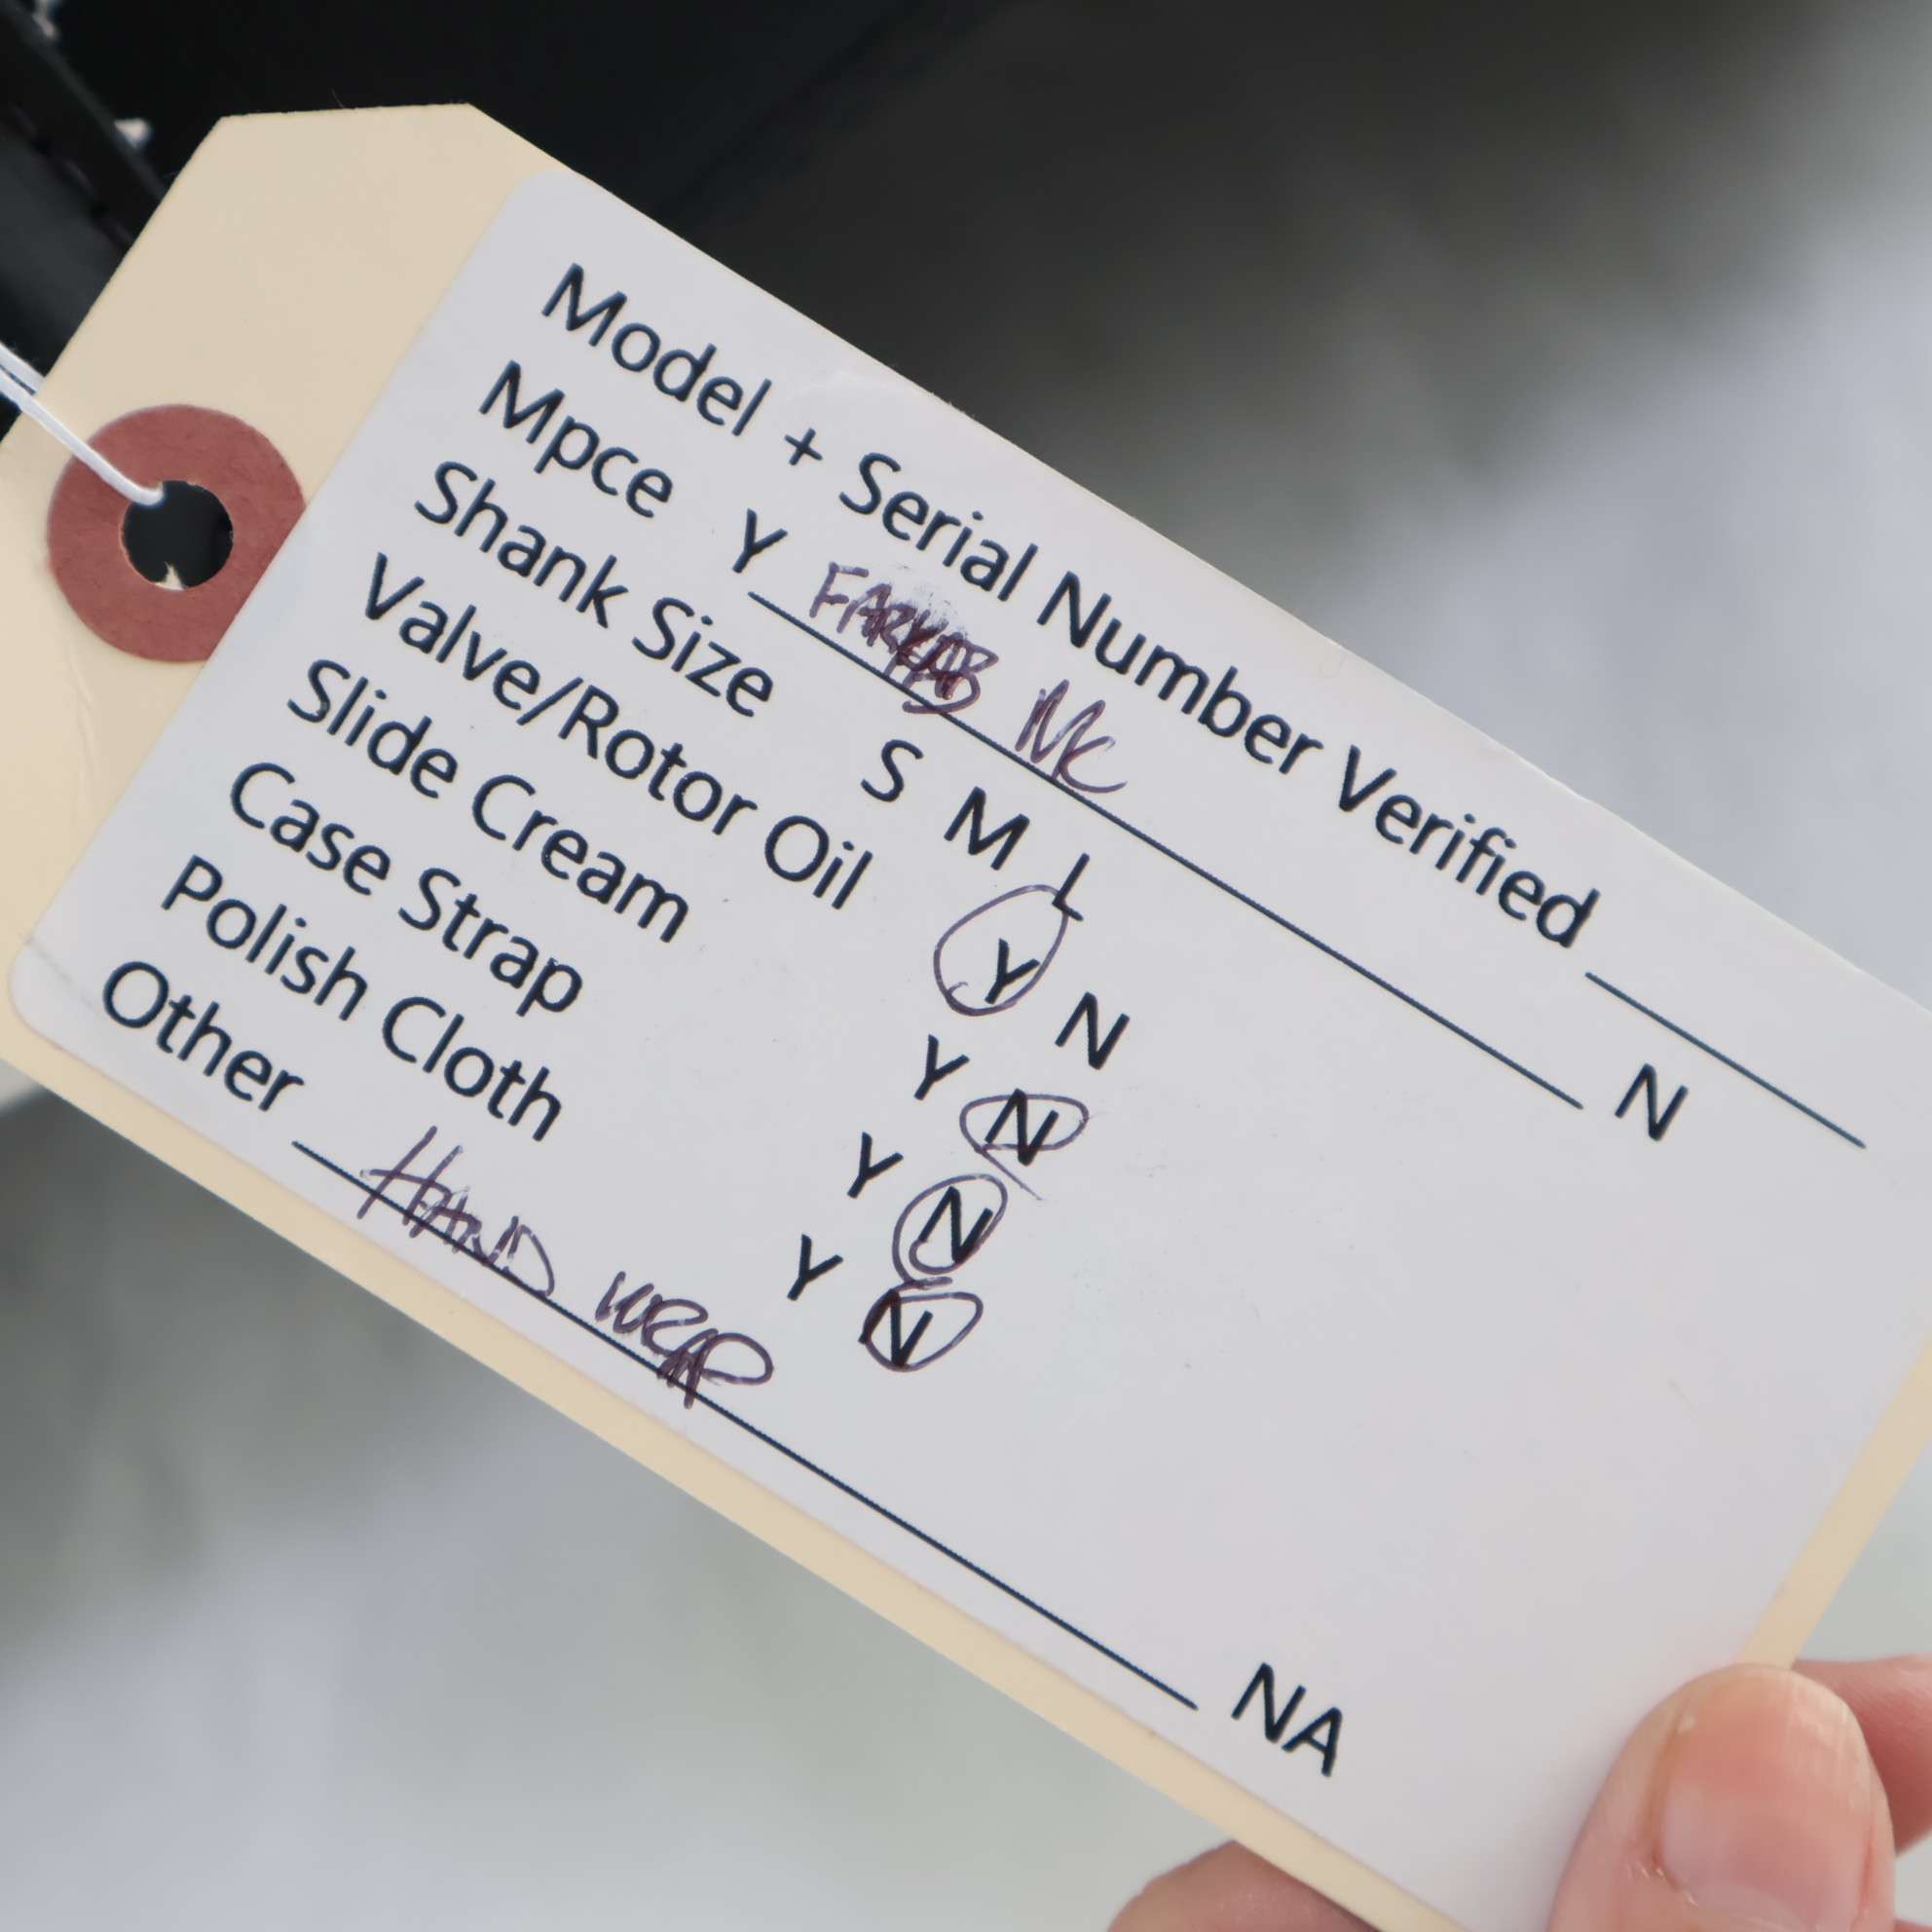 Model + Serial Number Verified ____
Mpce Y MC N
Shank Size S M L
Valve/Rotor Oil Y N
Slide Cream Y N
Case Strap Y N
Polish Cloth Y N
Other HAND WRAP NA